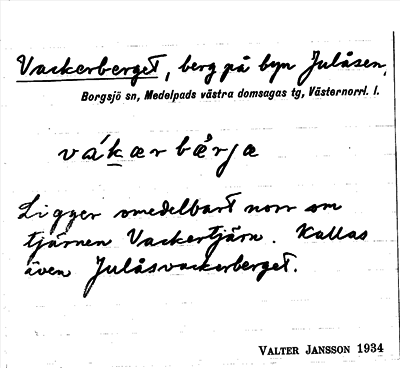 Vackerberget, berg på byn Julåsen,
Borgsjö sn, Medelpads västra domsagas tg, Västernorrl. l.
vák̲ærbæ̊rja
Ligger omedelbart norr om
tjärnen Vackertjärn. Kallas
även Julåsvackerberget.
VALTER JANSSON 1934